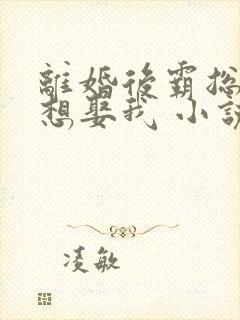 離婚後霸總
想娶我 小說
凌敏